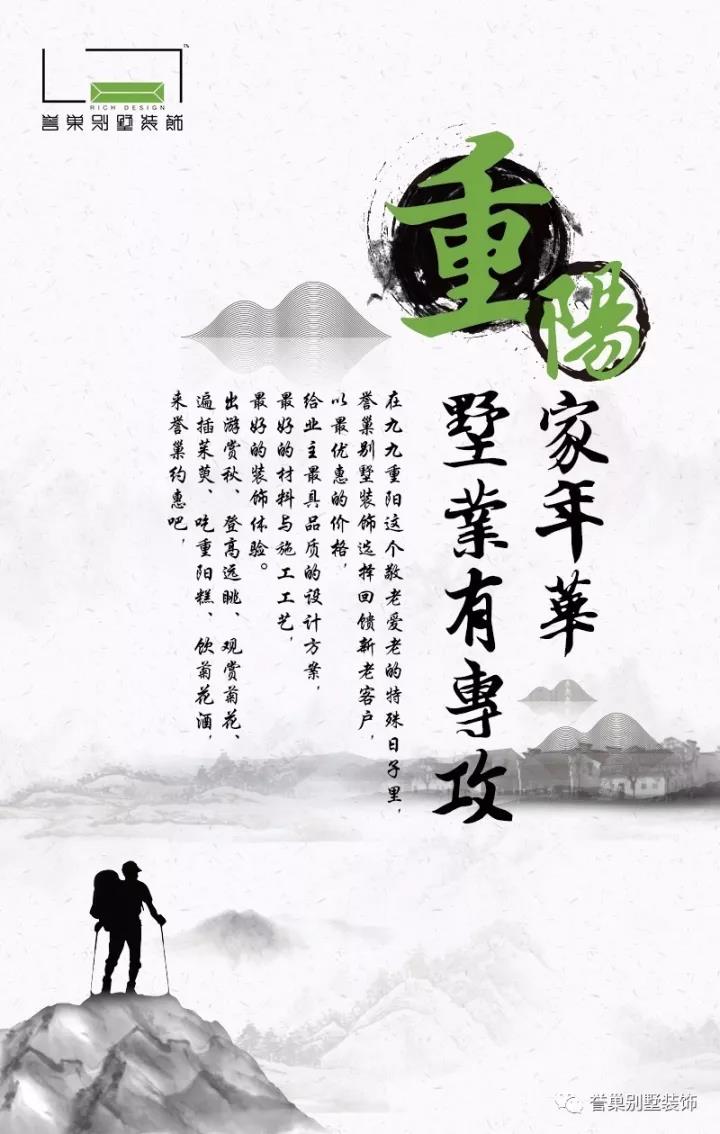 RICH DESIGN
誉巢别墅装飾
TM
重陽
家年華
墅業有專攻
在九九重阳这个敬老爱老的特殊日子里，
誉巢别墅装饰选择回馈新老客户，
以最优惠的价格，
给业主最具品质的设计方案，
最好的材料与施工工艺，
最好的装饰体验。
出游赏秋、登高远眺、观赏菊花、
遍插茱萸、吃重阳糕、饮菊花酒，
来誉巢约惠吧，
誉巢别墅装饰